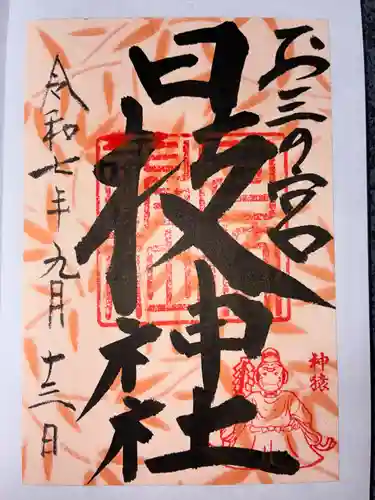 お三の宮
日枝神社
令和七年 九月 十三日
神猿